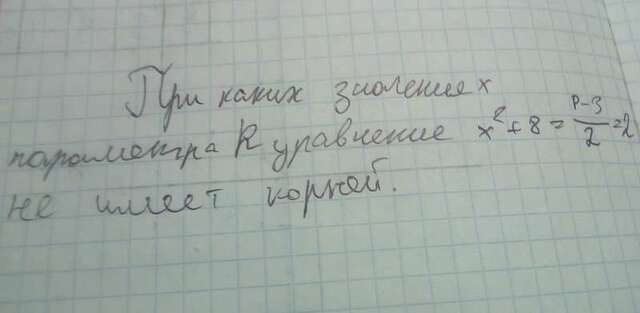 При каких значениях
параметра R уравнение x² + 8 = \frac{P-3}{2} = 2
не имеет корней.